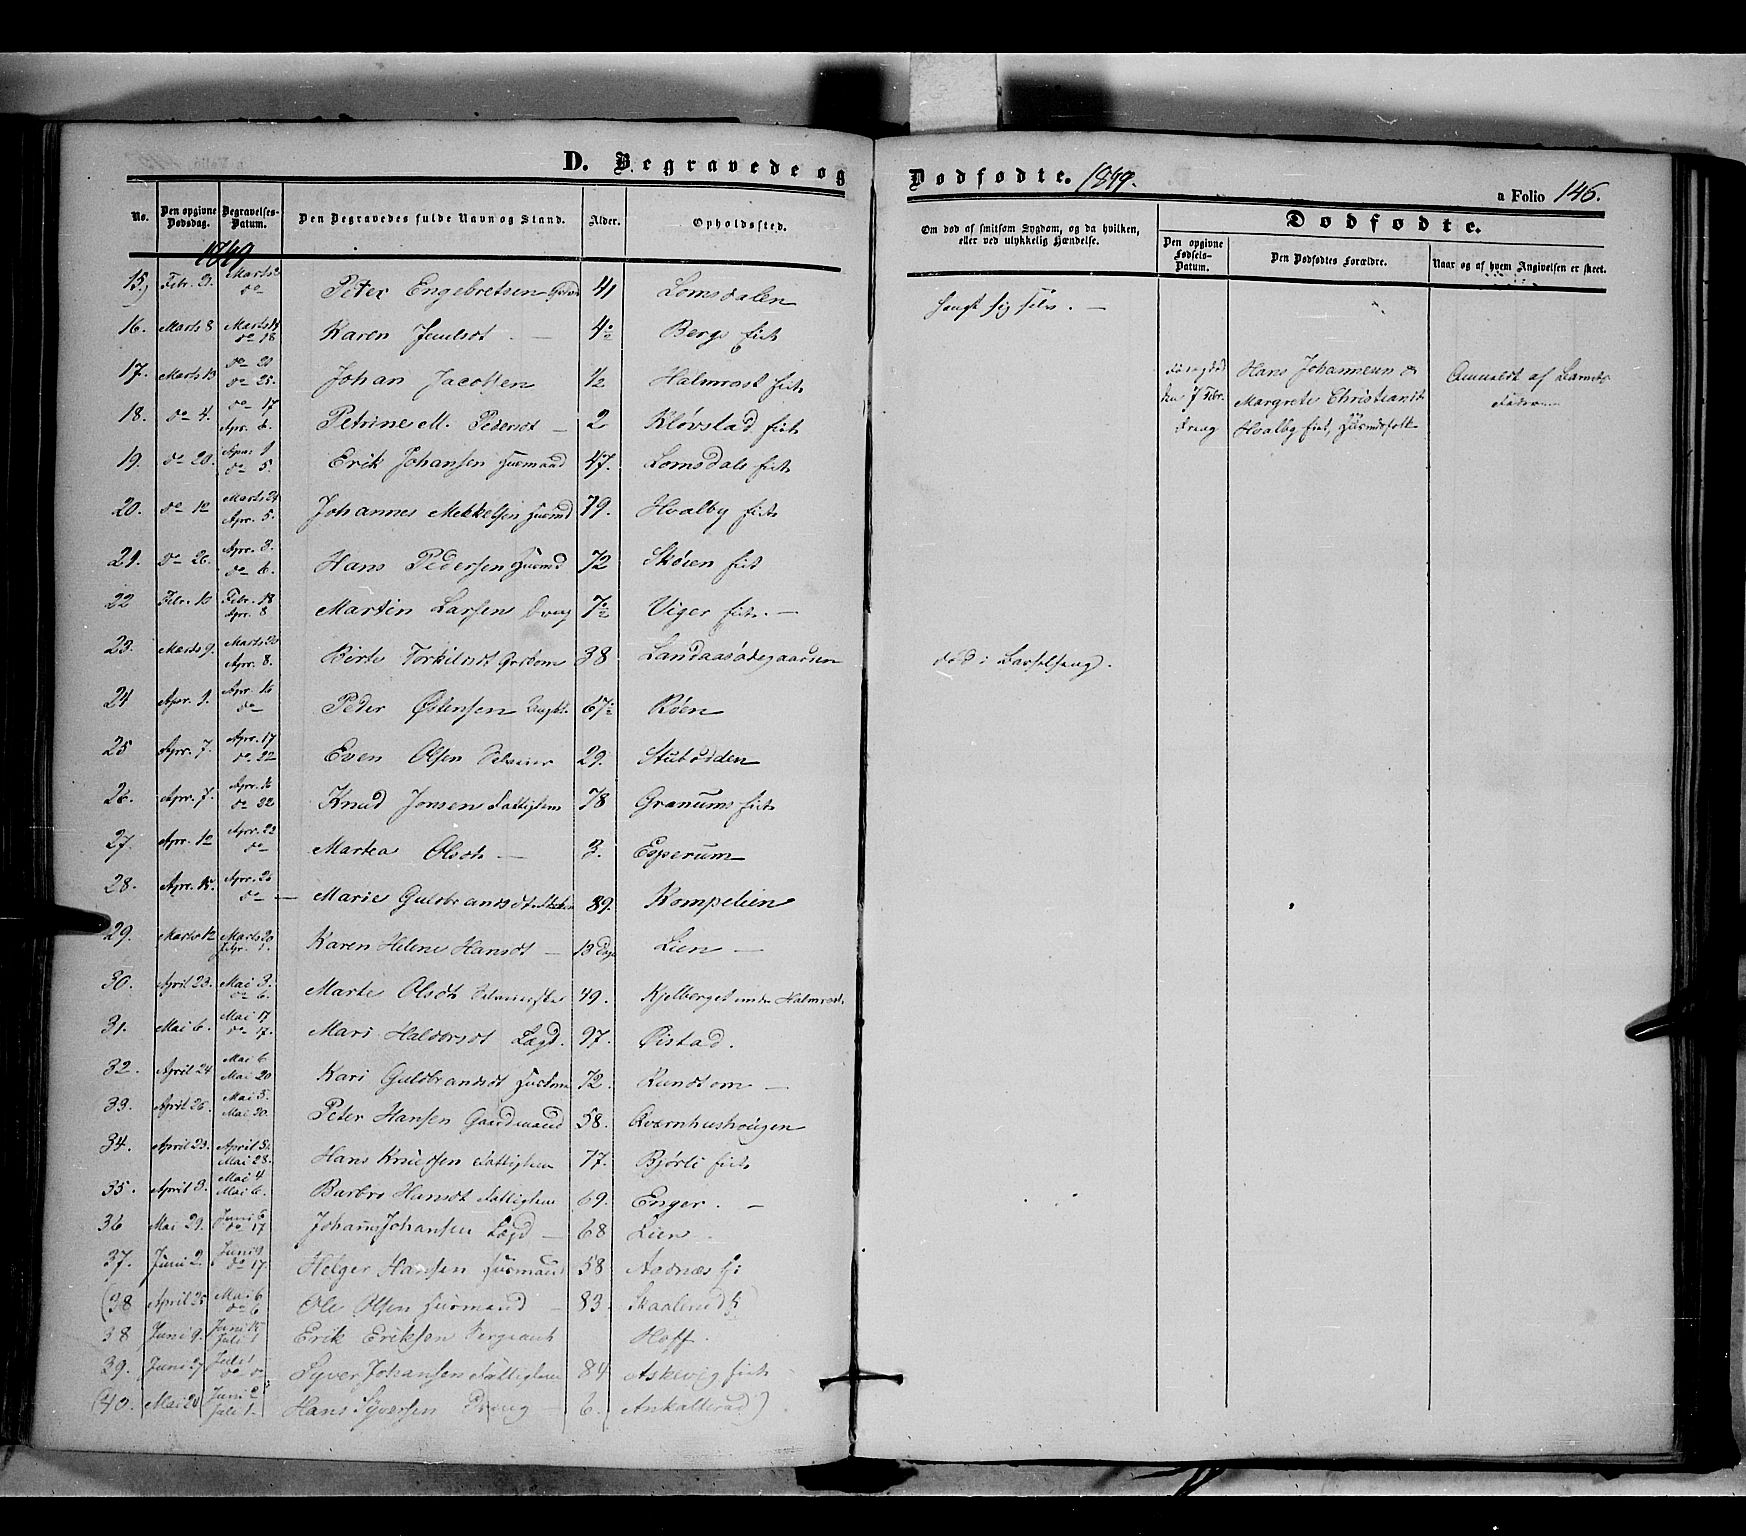 D. Begravede og Dødfødte. 1849. a Folio 146.
No. Den opgivne Dødsdag. Begravelses-Datum. Den Begravedes fulde Navn og Stand. Alder. Opholdssted. Om død af smitsom Sygdom, og da hvilken, eller ved ulykkelig Hændelse. Dødfødte.
Den opgivne Fødsels-Datum. Den Dødfødtes Forældre. Naar og af hvem Angivelsen er skeet.
1849
15. Febr. 3. Marts do Peter Engebretsen 41 Lomsdalen hængt sig selv. —
16. Marts 8 Marts do 18 Karen Juulsdt — 4 Bergs eiet
17. Marts 13 do 20 do 25. Johan Jacobsen 1/2 Halmrast eiet
Hans Johannesen &
Margrethe Christiansdt
Hvalby eiet, Huusmdsfolk
den 7 Febr.
Dreng
Anmeldt af Barnets Fader
18. do 4. do 17 Apr. 6. Petrine M. Pedersdt — 2 Kløvstad eiet
19. do 20. Apr. 1 do 5. Erik Johansen Huusmand 47. Lomsdals eiet
20. do 12 Marts 24 Apr. 5. Johannes Mekkelsen Huusmd 79. Hvalby eiet
21. do 26. Apr. 3. do 6. Hans Pedersen Huusmd 72 Skøien eiet
22 Febr. 10 Febr. 18 Apr. 8 Martin Larsen Dreng 7 Viger eiet. —
23. Marts 9. Marts 20 Apr. 8. Birte Torkildsdt 38 Landaasødegaarden død i Barselseng.
24 Apr. 1. Apr. 16 do Peder Østensen 67 Røen
25 Apr. 7. Apr. 17 do 22 Even Olsen Selveier 29. Stubødden
26. Apr. 7. Apr. 16 do 22 Knud Jonsen Fattiglem 78 Granums eiet
27. Apr. 12 Apr. 22 do Martea Olsdt — 3. Esperum
28. Apr. 15. Apr. 26 do — Marie Guldbrandsdt 89. Rompelien
29. Marts 12 Marts 20 Apr. 1. Karen Helene Hansdt — 13 Dage Lien —
30. April 23. Mai 3. do 6. Marte Olsdt 49. Kjelberget under Halmrast
31. Mai 6. Mai 17 do 17. Mari Halvorsdt Lægd. 97. Øistad.
32. April 24 Mai 6 Mai 20 Kari Guldbrandsdt 72. —
33. April 26. Mai 5. Mai 20. Peter Hansen Gaardmand 58. Qværnhushougen
34. April 23. April Mai 28. Hans Knudsen Fattiglem 77. Bjørli eiet
35. April 3. Mai 4 Mai 6. Barbro Hansdt Fattiglem 69. Enger. —
36 Mai 29. Juni 6 do 17 Johans Johansen Lægd — 68 Lien.
37. Juni 2. Juni 9 do 17 Helger Hansen Huusmand 58 Aadnæs
(38 April 25 Mai 6 do 6. Ole Olsen Huusmand — 83.
38 Juni 9. Juni 15 Juli 1 Erik Eriksen Sergeant Hoff.
39. Juni 27 Juli 1 do do Syver Johansen Fattiglem 84 Askevig eiet
(40. Mai 20 Juni 2 Juli 1. Hans Syversen Dreng — 6.